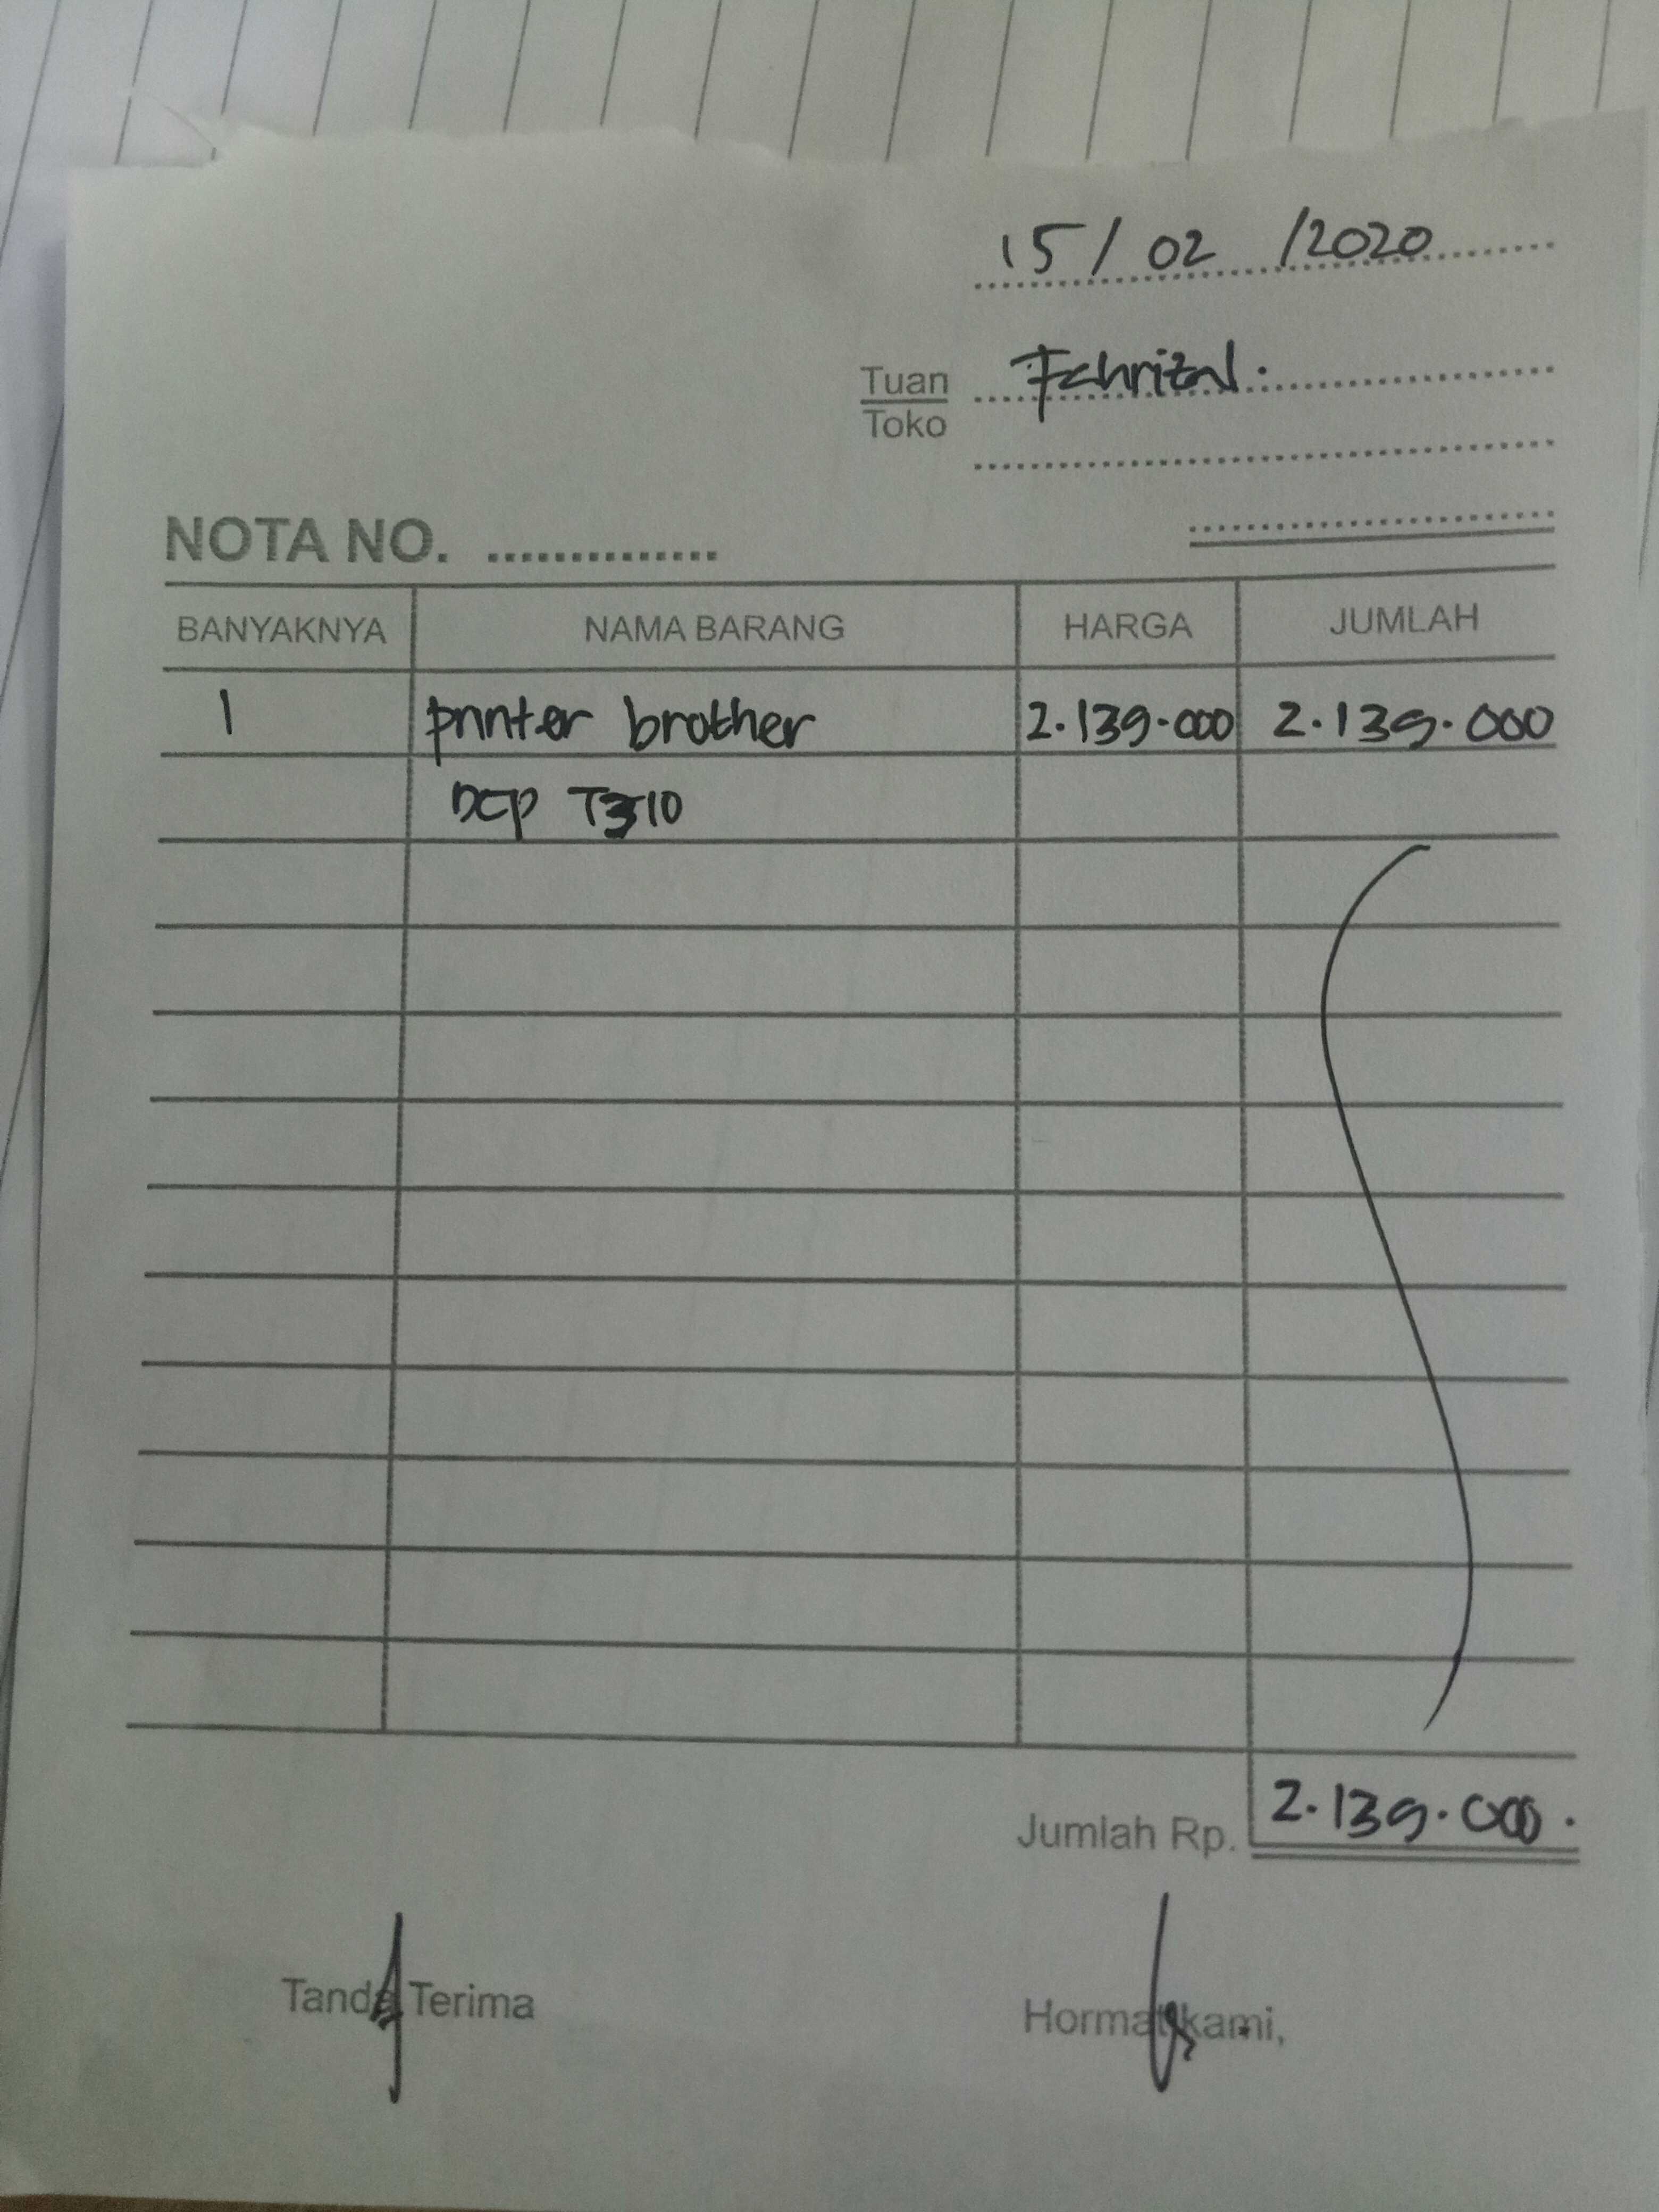 15 / 02 / 2020
Tuan Fchrizal.
Toko
NOTA NO. ..............
BANYAKNYA NAMA BARANG HARGA JUMLAH
1 printer brother 2.139.000 2.139.000
DCP T310
Jumlah Rp. 2.139.000.
Tanda Terima Hormat kami,